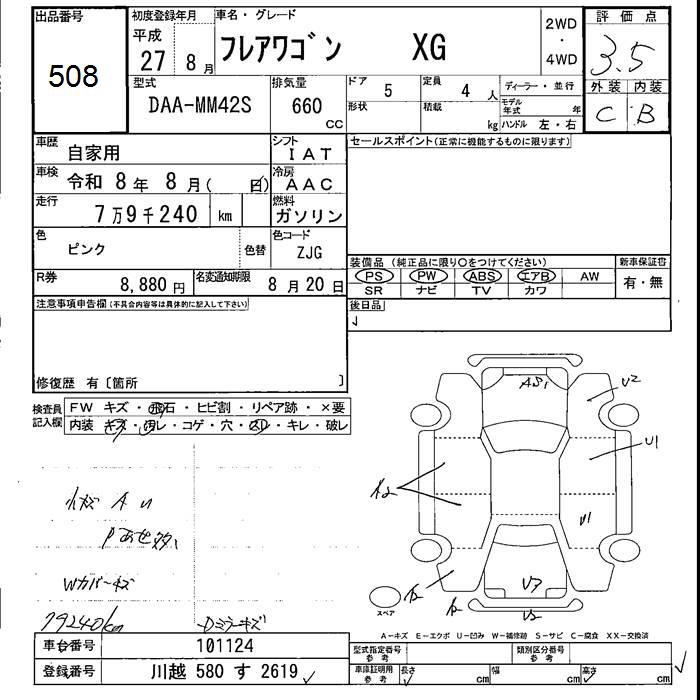 出品番号 初度登録年月 車名・グレード 2WD・4WD 評価点
508 平成 27 8月 フレアワゴン XG 3.5
型式 排気量 ドア 5 定員 4人 ディーラー・並行 外装 内装
DAA-MM42S 660 CC 形状 積載 kg モデル年式 年 ハンドル 左・右 C B
車歴 自家用 シフト IAT セールスポイント(正常に機能するものに限ります)
車検 令和 8年 8月( 日) 冷房 AAC
走行 7万9千240 km 燃料 ガソリン
色 ピンク 色替 色コード ZJG
装備品(純正品に限り○をつけてください) 新車保証書
PS PW ABS エアB AW 有・無
SR ナビ TV カワ
R券 8,880円 名変通知期限 8月20日
後日品
注意事項申告欄(不具合内容等は具体的に記入して下さい)
修復歴 有〔箇所 〕
検査員記入欄 FW キズ・飛石・ヒビ割・リペア跡・×要
内装 キズ・汚レ・コゲ・穴・スレ・キレ・破レ
A U
Wカバーキズ
79240km Dミラーキズ
U2
U1
U1
スペア
A-キズ E-エクボ U-凹み W-補修跡 S-サビ C-腐食 XX-交換済
車台番号 101124 型式指定番号 参考 類別区分番号 参考
登録番号 川越 580 す 2619 車庫証明用 参考 長さ cm 幅 cm 高さ cm